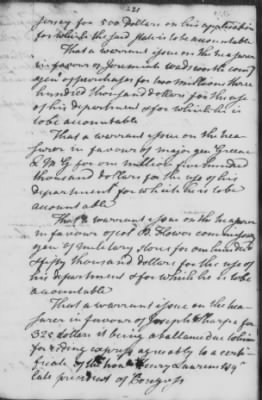 221
Jersey for 500 dollars on his application
for which the said state is to be accountable
That a warrant issue on the treasurer
in favour of Jeremiah wadsworth comy
genl of purchases for two millions three
hundred thousand dollars for the use
of his department & for which he is
to be accountable
That a warrant issue on the trea-
surer in favour of major gen Greene
Q M G for one million five hundred
thousand dollars for the use of his
department for which he is to be
accountable
That a warrant issue on the treasurer
in favour of col B. Flower commissary
gen of military stores for one hundred
& fifty thousand dollars for the use of
his department & for which he is to be
accountable
That a warrant issue on the trea-
surer in favour of Joseph Sharpe for
320 dollars it being a ballance due to him
for riding express agreeably to a certi-
ficate of the hon Henry Laurens esqr
late president of Congress